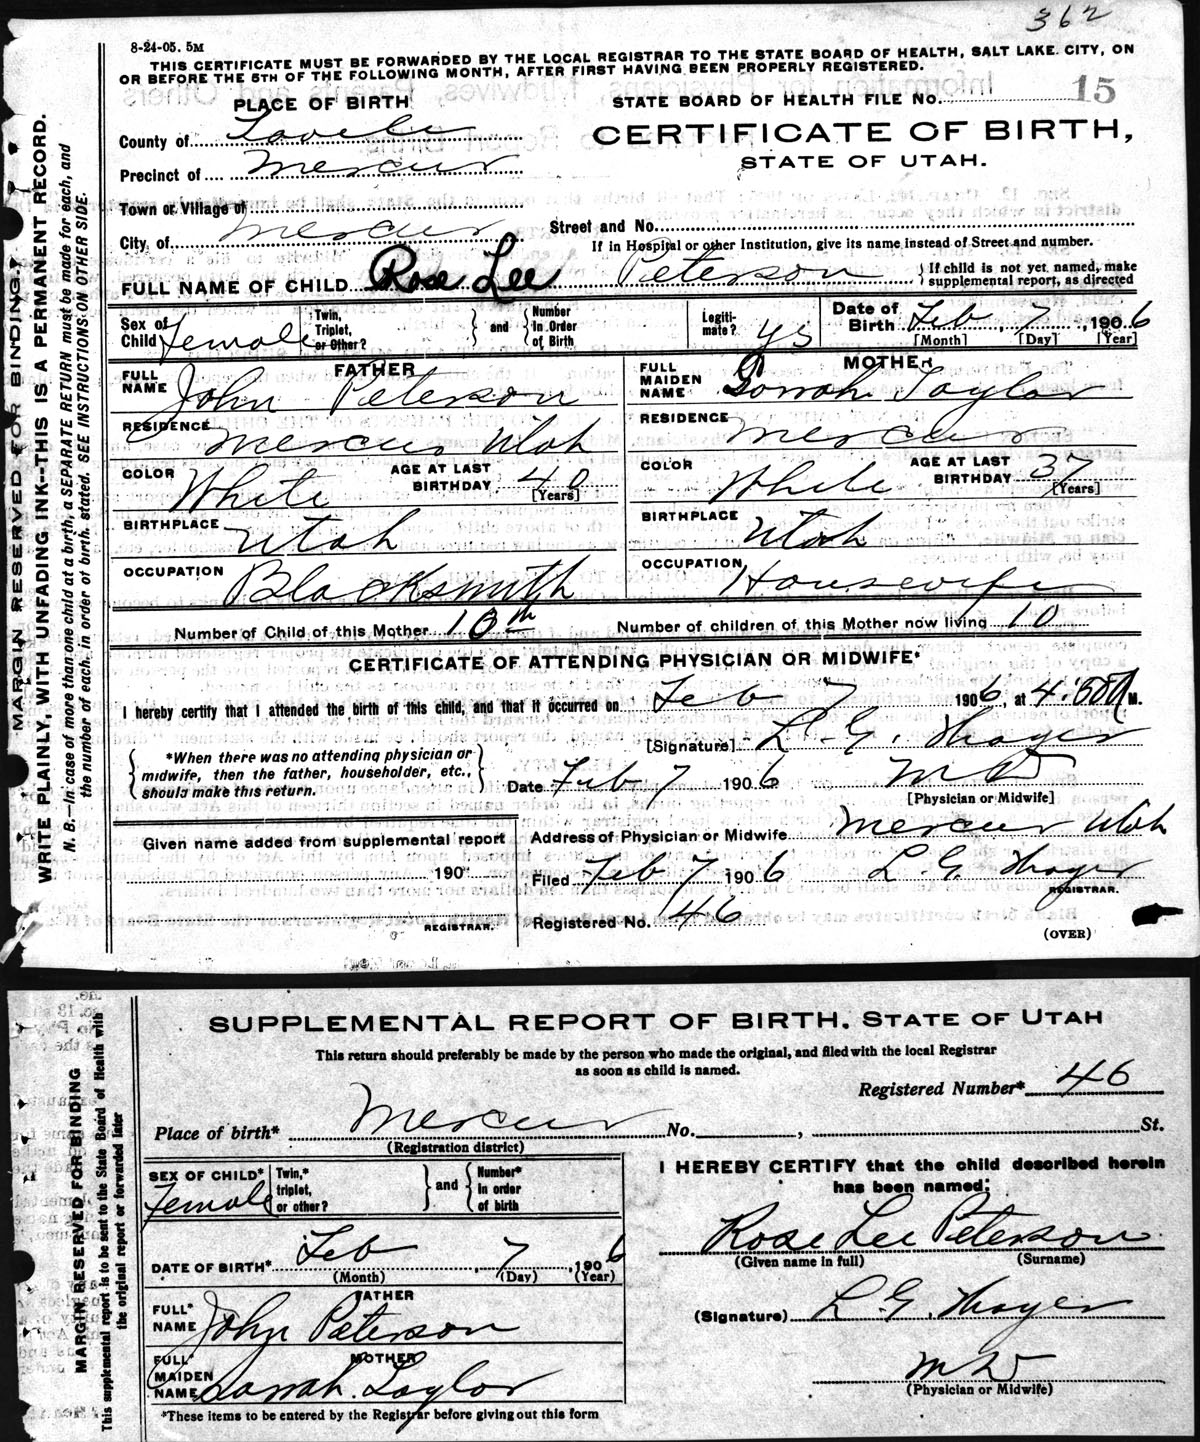 362
8-24-05. 5M
THIS CERTIFICATE MUST BE FORWARDED BY THE LOCAL REGISTRAR TO THE STATE BOARD OF HEALTH, SALT LAKE CITY, ON
OR BEFORE THE 5TH OF THE FOLLOWING MONTH, AFTER FIRST HAVING BEEN PROPERLY REGISTERED.
PLACE OF BIRTH
STATE BOARD OF HEALTH FILE No. 15
County of Tooele
CERTIFICATE OF BIRTH,
STATE OF UTAH.
Precinct of Mercur
Town or Village of
City of Mercur
Street and No.
If in Hospital or other Institution, give its name instead of Street and number.
FULL NAME OF CHILD Rose Lee Peterson } If child is not yet named, make supplemental report, as directed
Sex of Child Female
Twin, Triplet, or Other? } and { Number in Order of Birth
Legiti-mate? yes
Date of Birth Feb, 7, 1906
[Month] [Day] [Year]
FATHER
MOTHER
FULL NAME John Peterson
FULL MAIDEN NAME Sarrah Taylor
RESIDENCE Mercur Utah
RESIDENCE Mercur
COLOR White AGE AT LAST BIRTHDAY 40 [Years]
COLOR White AGE AT LAST BIRTHDAY 37 [Years]
BIRTHPLACE Utah
BIRTHPLACE Utah
OCCUPATION Blacksmith
OCCUPATION Housewife
Number of Child of this Mother 10th
Number of children of this Mother now living 10
CERTIFICATE OF ATTENDING PHYSICIAN OR MIDWIFE*
I hereby certify that I attended the birth of this child, and that it occurred on Feb 7 1906, at 4:50 M.
{ *When there was no attending physician or midwife, then the father, householder, etc., should make this return. }
[Signature] L. G. Thayer
Date Feb 7 1906 MD
[Physician or Midwife]
Given name added from supplemental report
190
REGISTRAR.
Address of Physician or Midwife Mercur Utah
Filed Feb 7 1906 L. G. Thayer
REGISTRAR.
Registered No. 46
(OVER)
MARGIN RESERVED FOR BINDING.
WRITE PLAINLY, WITH UNFADING INK--THIS IS A PERMANENT RECORD.
N. B.—In case of more than one child at a birth, a SEPARATE RETURN must be made for each, and
the number of each, in order of birth, stated. SEE INSTRUCTIONS ON OTHER SIDE.
SUPPLEMENTAL REPORT OF BIRTH. STATE OF UTAH
This return should preferably be made by the person who made the original, and filed with the local Registrar
as soon as child is named.
Registered Number* 46
Place of birth* Mercur No. , St.
(Registration district)
SEX OF CHILD* Female
Twin,* triplet, or other? } and { Number* in order of birth
I HEREBY CERTIFY that the child described herein
has been named:
Rose Lee Peterson
(Given name in full) (Surname)
DATE OF BIRTH* Feb, 7, 1906
(Month) (Day) (Year)
FATHER
FULL* NAME John Peterson
(Signature) L. G. Thayer
MOTHER
FULL* MAIDEN NAME Sarrah Taylor
MD
(Physician or Midwife)
*These items to be entered by the Registrar before giving out this form
MARGIN RESERVED FOR BINDING
This supplemental report is to be sent to the State Board of Health with
the original report or forwarded later